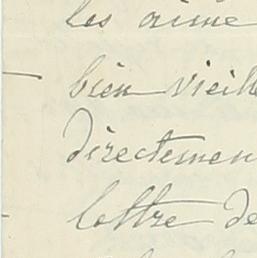 les aime
bien vieill
directemen
lettre de